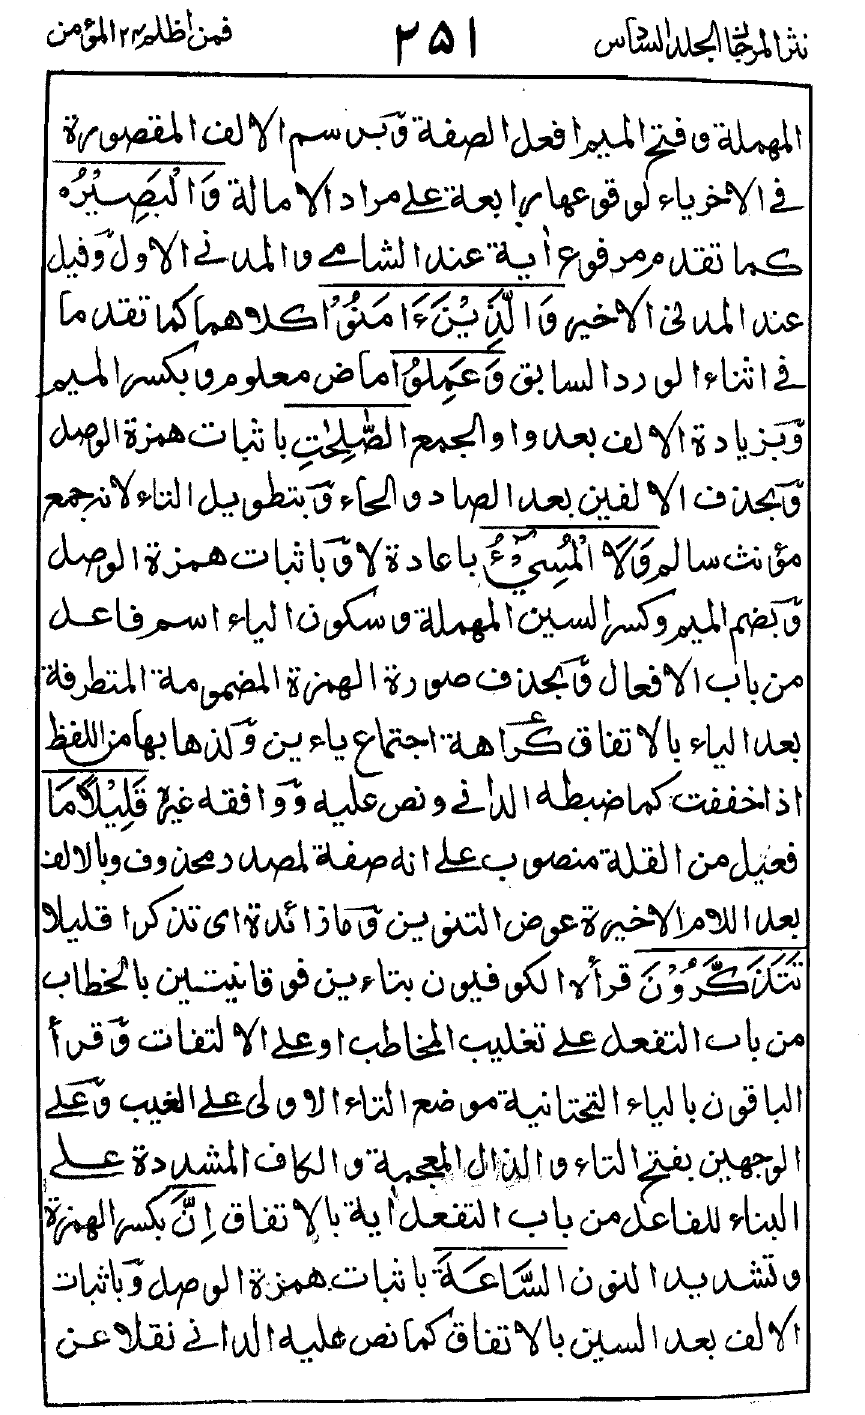 نثر المرجان المجلد السادس ٣٥١ فمن اظلم ٢٤ المؤمن
المهملة و فتح الميم افعل الصفة وَّبرسم الالف المقصورة
فى الاخر ياء لوقوعها رابعة على مراد الامالة وَالْبَصِيْرُه
كما تقدم مرفوع اٰية عند الشامى و المدنى الاول وَّقيل
عند المدنى الاخير وَالَّذِيْنَ ءَامَنُوْا كلاهما كما تقدما
فى اثناء الورد السابق وَعَمِلُوا ماض معلوم و بكسر الميم
وَّبزيادة الالف بعد واو الجمع الصّٰلِحٰتِ باثبات همزة الوصل
وَّبحذف الالفين بعد الصاد و الحاء وَّبتطويل التاء لانه جمع
مؤنث سالم وَلَا الْمُسِيْٓءُ باعادة لا وَّباثبات همزة الوصل
وَّبضم الميم و كسر السين المهملة و سكون الياء اسم فاعل
من باب الافعال وَّبحذف صورة الهمزة المضمومة المتطرفة
بعد الياء بالاتفاق كراهة اجتماع ياءين وَّلذهابها من اللفظ
اذا خففت كما ضبطه الدانى و نص عليه وَّوافقه غيره قَلِيْلًا مَا
فعيل من القلة منصوب على انه صفة لمصدر محذوف و بالالف
بعد اللام الاخيرة عوض التنوين وَّما زائدة اى تذكرا قليلا
تَتَذَكَّرُوْنَ قرأه الكوفيون بتاءين فوقانيتين بالخطاب
من باب التفعل على تغليب المخاطب او على الالتفات وَّقرأ
الباقون بالياء التحتانية موضع التاء الاولى على الغيب وَّعلى
الوجهين بفتح التاء و الذال المعجمة و الكاف المشددة على
البناء للفاعل من باب التفعل اٰية بالاتفاق اِنَّ بكسر الهمزة
و تشديد النون السَّاعَةَ باثبات همزة الوصل وَّباثبات
الالف بعد السين بالاتفاق كما نص عليه الدانى نقلا عن